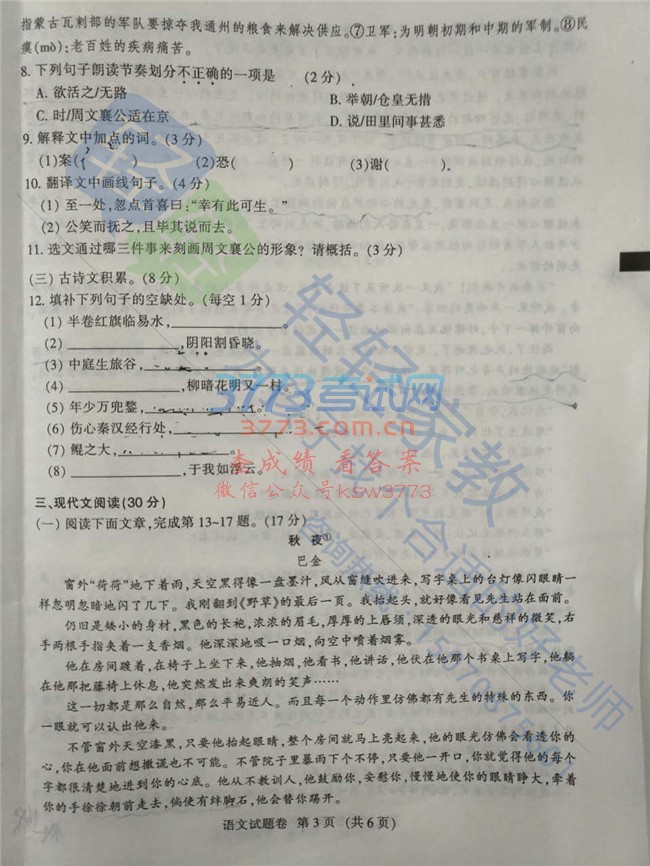 指蒙古瓦剌部的军队要掠夺我通州的粮食来解决供应。⑦卫军:为明朝初期和中期的军制。⑧民
瘼(mò):老百姓的疾病痛苦。
8.下列句子朗读节奏划分不正确的一项是 (2分)
A. 欲活之/无路 B. 举朝/仓皇无措
C. 时/周文襄公适在京 D. 说/田里间事甚悉
9. 解释文中加点的词。(3分)
(1)案( ) (2)恐( ) (3)谢( )。
10. 翻译文中画线句子。(4分)
(1) 至一处,忽点首喜曰:“幸有此可生。”
(2) 公笑而抚之,且毕其说而去。
11. 选文通过哪三件事来刻画周文襄公的形象?请概括。(3分)
(三) 古诗文积累。(8分)
12. 填补下列句子的空缺处。(每空1分)
(1) 半卷红旗临易水,________。
(2) ________,阴阳割昏晓。
(3) 中庭生旅谷,________。
(4) ________,柳暗花明又一村。
(5) 年少万兜鍪,________。
(6) 伤心秦汉经行处,________。
(7) 鲲之大,________。
(8) ________,于我如浮云。
3773考试网
3773.com.cn
查成绩 看答案
微信公众号ksw3773
轻轻家教
三、现代文阅读(30分)
(一) 阅读下面文章,完成第13-17题。(17分)
秋 夜①
巴金
窗外“荷荷”地下着雨,天空黑得像一盘墨汁,风从窗缝吹进来,写字桌上的台灯像闪眼睛一
样忽明忽暗地闪了几下。我刚翻到《野草》的最后一页。我抬起头,就好像看见先生站在面前。
仍旧是矮小的身材,黑色的长袍,浓浓的眉毛,厚厚的上唇须,深透的眼光和慈祥的微笑,右
手两根手指夹着一支香烟。他深深地吸一口烟,向空中喷着烟雾。
他在房间踱着,在椅子上坐下来,他抽烟,他看书,他讲话,他伏在他那个书桌上写字,他躺
在他那把藤椅上休息,他突然发出来爽朗的笑声……
这一切都是那么自然,那么平易近人。而且每一个动作里仿佛都有先生的特殊的东西。你
一眼就可以认出他来。
不管窗外天空漆黑,只要他抬起眼睛,整个房间就马上亮起来,他的眼光仿佛会看透你的
心,你在他面前想撒谎也不可能。不管院子里暴雨下个不停,只要他一开口,你就觉得他的每个
字都很清楚地进到你的心底。他从不教训人,他鼓励你,安慰你,慢慢地使你的眼睛睁大,牵着
你的手徐徐朝前走去,倘使有绊脚石,他会替你踢开。
语文试题卷 第3页 (共6页)